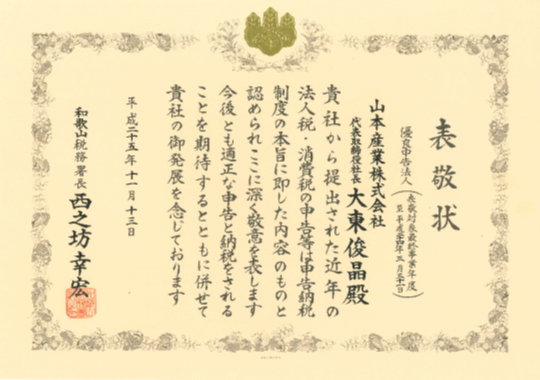 表敬状
優良申告法人
(表敬対象最終事業年度
至 平成二十四年三月三十一日)
山本産業株式会社
代表取締役社長 大東俊晶殿
貴社から提出された近年の
法人税・消費税の申告等は申告納税
制度の本旨に即した内容のものと
認められここに深く敬意を表します
今後とも適正な申告と納税をされる
ことを期待するとともに併せて
貴社の御発展を念じております
平成二十五年十一月十三日
和歌山税務署長 西之坊幸宏